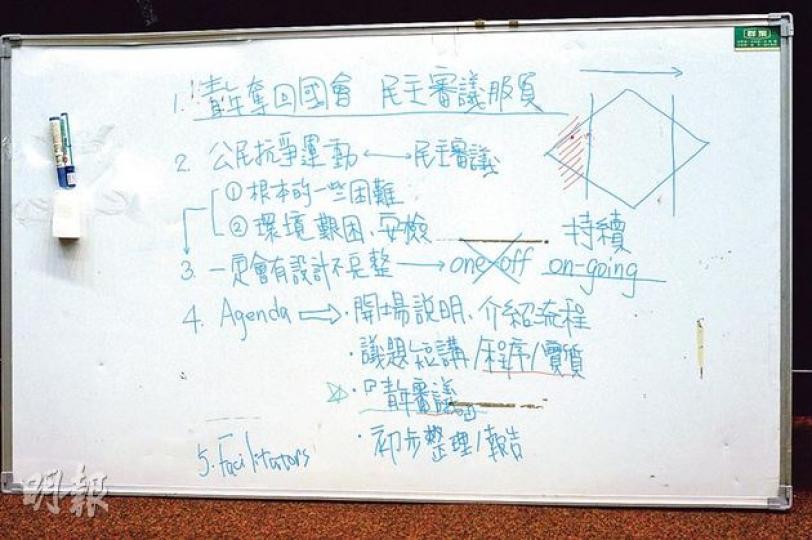 群策
1. 青年奪回國會 民主審議服貿
2. 公民抗爭運動 ←→ 民主審議
① 根本的一些困難
② 環境艱困、安檢
持續
3. 一定會有設計不完整 → one off on-going
4. Agenda ⇒ · 開場說明、介紹流程
· 議題短講/程序/實質
☆ · 青年審議
· 初步整理/報告
5. Facilitators
明報